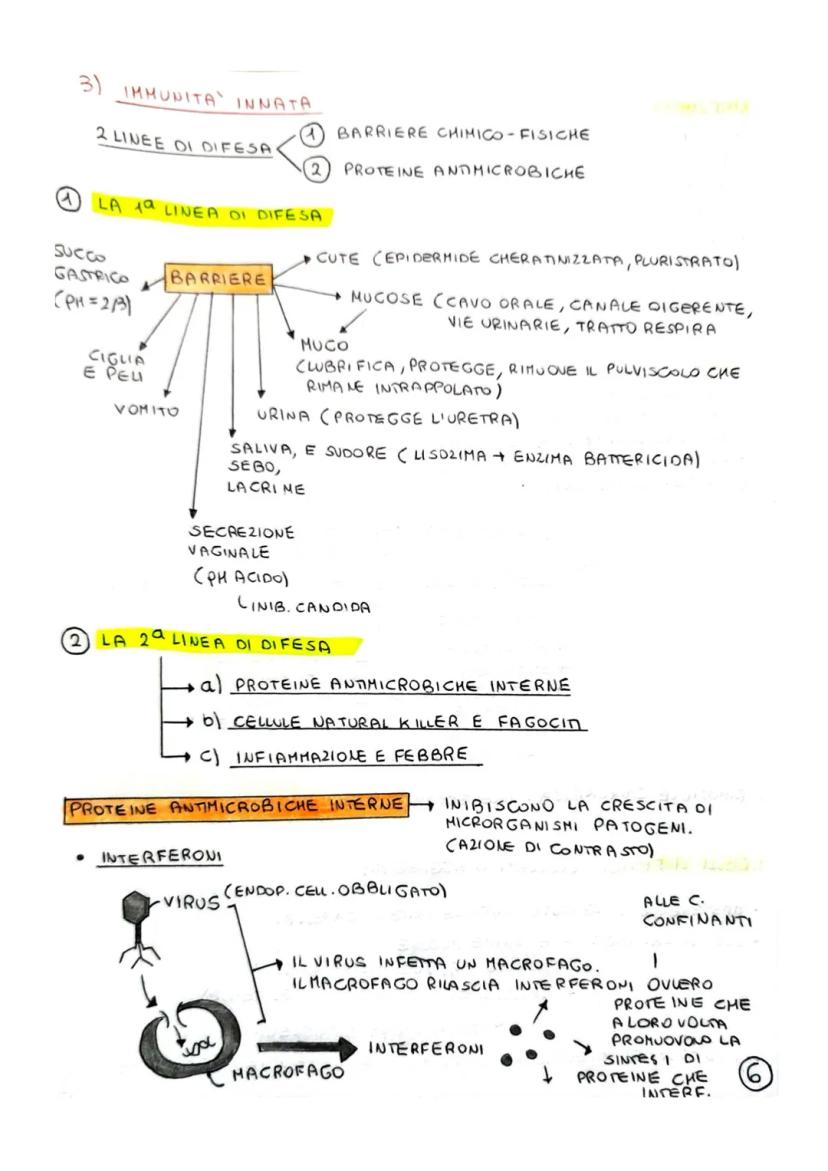 3) IMMUNITA' INNATA
2 LINEE DI DIFESA
1 BARRIERE CHIMICO-FISICHE
2 PROTEINE ANTIMICROBICHE
1 LA 1ª LINEA DI DIFESA
SUCCO
GASTRICO
(PH = 2/3)
BARRIERE
CUTE (EPIDERMIDE CHERATINIZZATA, PLURISTRATO)
MUCOSE (CAVO ORALE, CANALE DIGERENTE,
VIE URINARIE, TRATTO RESPIRA
MUCO
(LUBRIFICA, PROTEGGE, RIMUOVE IL PULVISCOLO CHE
RIMANE INTRAPPOLATO)
CIGLIA
E PELI
VOMITO
URINA (PROTEGGE L'URETRA)
SALIVA, E SUDORE (LISOZIMA → ENZIMA BATTERICIDA)
SEBO,
LACRIME
SECREZIONE
VAGINALE
(PH ACIDO)
INIB. CANDIDA
2 LA 2ª LINEA DI DIFESA
a) PROTEINE ANTIMICROBICHE INTERNE
b) CELLULE NATURAL KILLER E FAGOCITI
c) INFIAMMAZIONE E FEBBRE
PROTEINE ANTIMICROBICHE INTERNE → INIBISCONO LA CRESCITA DI
MICRORGANISMI PATOGENI.
(AZIONE DI CONTRASTO)
• INTERFERONI
VIRUS (ENDOP. CELL. OBBLIGATO)
ALLE C.
CONFINANTI
IL VIRUS INFETTA UN MACROFAGO.
IL MACROFAGO RILASCIA INTERFERONI OVVERO
PROTEINE CHE
A LORO VOLTA
PROMUOVONO LA
SINTESI DI
PROTEINE CHE
INTERF.
INTERFERONI
MACROFAGO
6